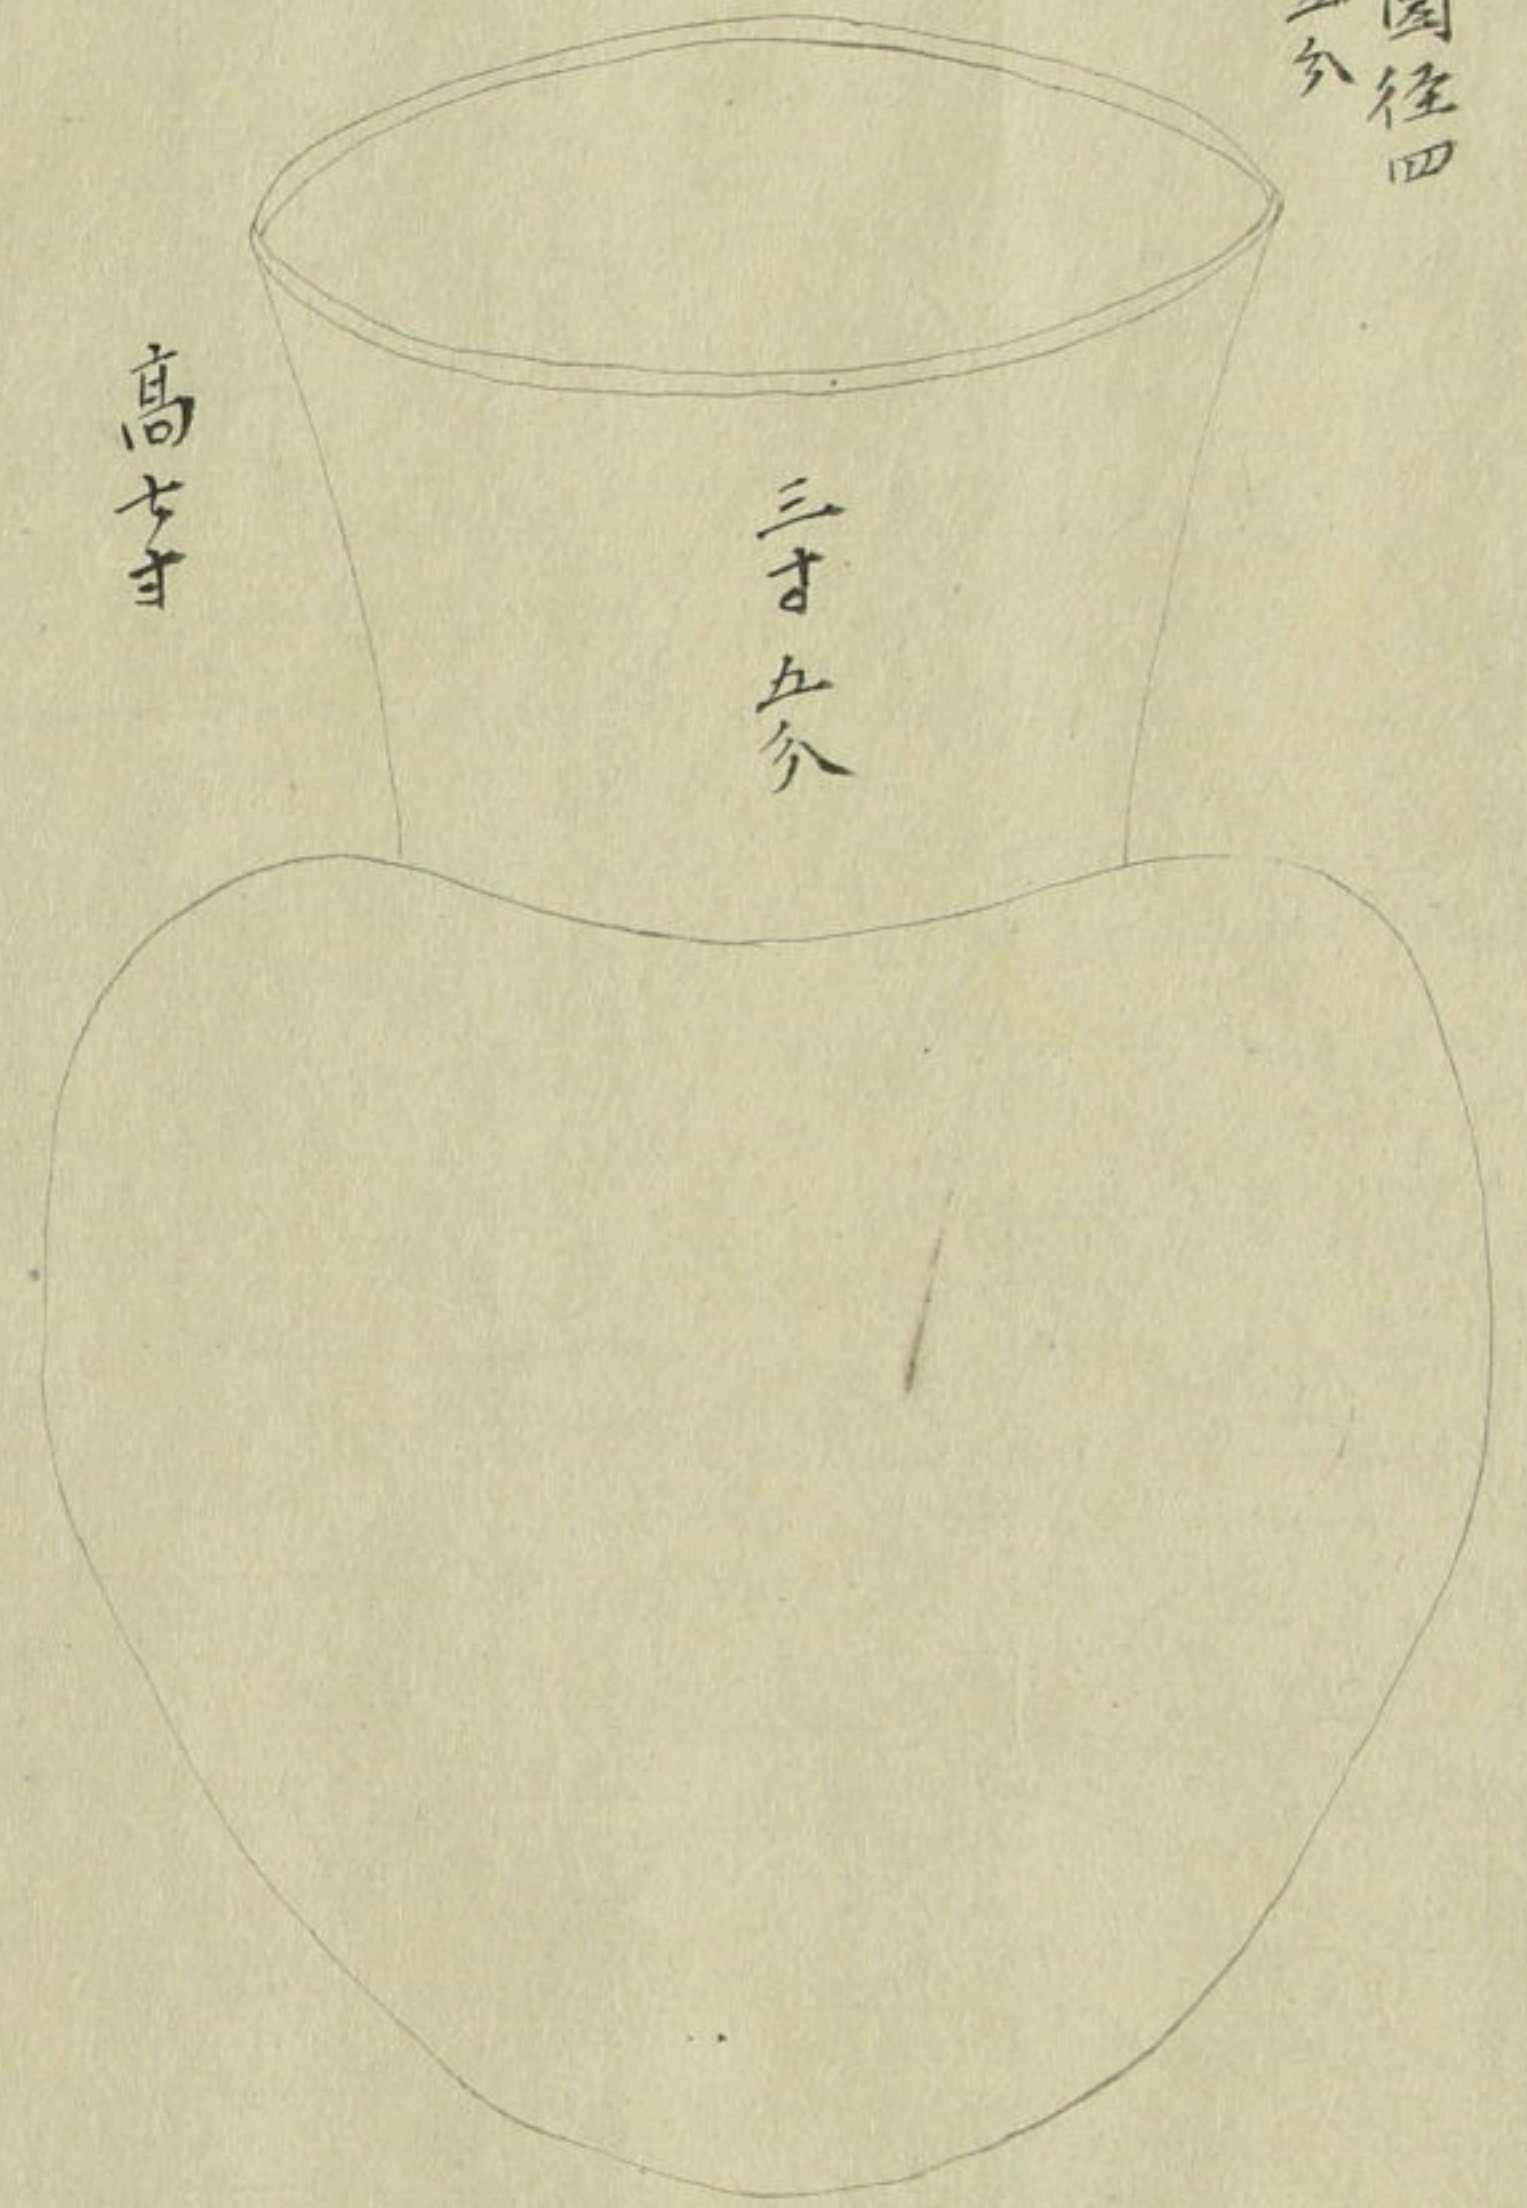 圓径四
五分
三寸五分
高七寸